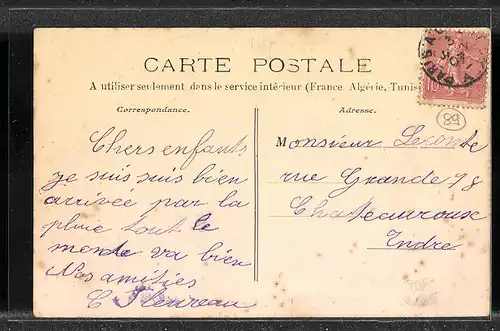 CARTE POSTALE
A utiliser seulement dans le service intérieur (France Algérie, Tunis
Correspondance.
Chers enfants
je suis suis bien
arrivée par la
pluie tout le
monde va bien
Nos amitiés
C Fleureau
Adresse.
Monsieur Lecomte
rue Grande 78
Chateauroux
Indre
PARIS
10
B8